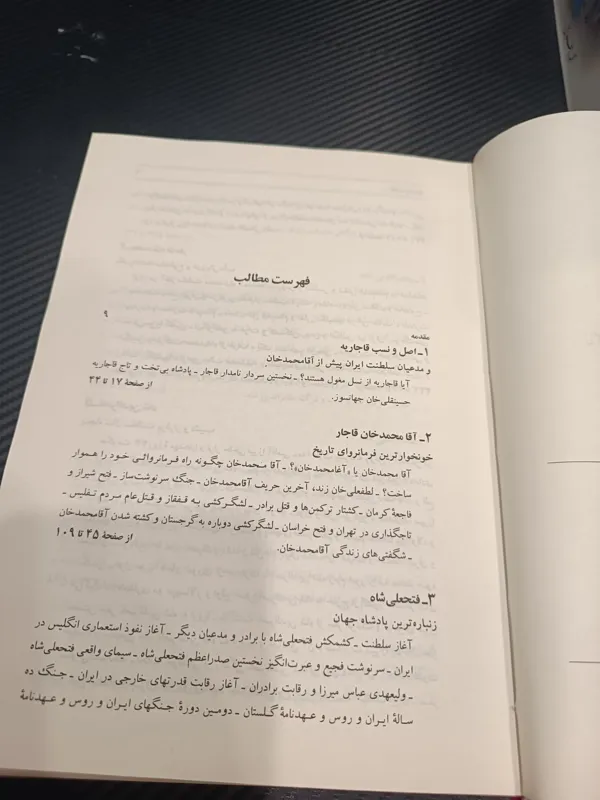 فهرست مطالب
مقدمه ۹
۱ـ اصل و نسب قاجاریه
و مدعیان سلطنت ایران پیش از آقامحمدخان
آیا قاجاریه از نسل مغول هستند؟ ـ نخستین سردار نامدار قاجار ـ پادشاه بی‌تخت و تاج قاجاریه
حسینقلی‌خان جهانسوز. از صفحهٔ ۱۷ تا ۴۴
۲ـ آقا محمدخان قاجار
خونخوارترین فرمانروای تاریخ
آقا محمدخان یا «آغامحمدخان»؟ ـ آقا محمدخان چگونه راه فرمانروائی خود را هموار
ساخت؟ ـ لطفعلی‌خان زند، آخرین حریف آقامحمدخان ـ جنگ سرنوشت‌ساز ـ فتح شیراز و
فاجعهٔ کرمان ـ کشتار ترکمن‌ها و قتل برادر ـ لشگرکشی به قفقاز و قتل‌عام مردم تفلیس ـ
تاجگذاری در تهران و فتح خراسان ـ لشگرکشی دوباره به گرجستان و کشته شدن آقامحمدخان
ـ شگفتی‌های زندگی آقامحمدخان. از صفحهٔ ۴۵ تا ۱۰۹
۳ـ فتحعلی‌شاه
زنباره‌ترین پادشاه جهان
آغاز سلطنت ـ کشمکش فتحعلی‌شاه با برادر و مدعیان دیگر ـ آغاز نفوذ استعماری انگلیس در
ایران ـ سرنوشت فجیع و عبرت‌انگیز نخستین صدراعظم فتحعلی‌شاه ـ سیمای واقعی فتحعلی‌شاه
ـ ولیعهدی عباس میرزا و رقابت برادران ـ آغاز رقابت قدرتهای خارجی در ایران ـ جنگ ده
سالهٔ ایران و روس و عهدنامهٔ گلستان ـ دومین دورهٔ جنگهای ایران و روس و عهدنامهٔ